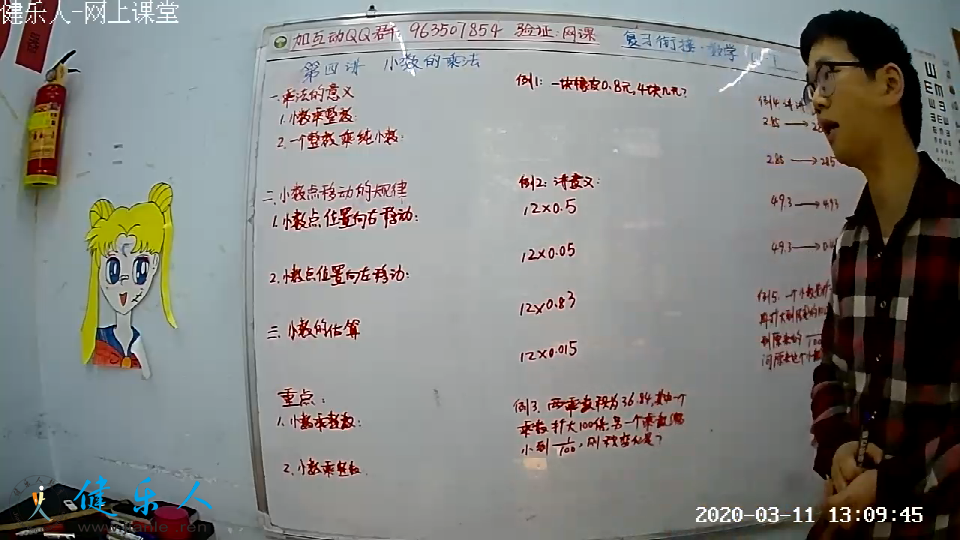 健乐人-网上课堂
加互动QQ群: 963507854 验证:网课 复习衔接:数学
第四讲 小数的乘法
一.乘法的意义
1.小数乘整数:
2.一个整数乘纯小数:
二.小数点移动的规律
1.小数点位置向右移动:
2.小数点位置向左移动:
三.小数的估算
重点:
1.小数乘整数:
2.小数乘整数
例1: 一块橡皮0.8元,4块几元?
例2: 讲意义:
12×0.5
12×0.05
12×0.83
12×0.015
例3. 两乘数积为36.84,其中一个
乘数扩大100倍,另一个乘数缩
小到1/100,则积变化是?
例4
285 → 28
285 → 285
49.3 → 493
49.3 → 0.4
例5: 一个小数
到原来的 1/100
问原来这个小数
健乐人
www.jianle.ren
2020-03-11 13:09:45